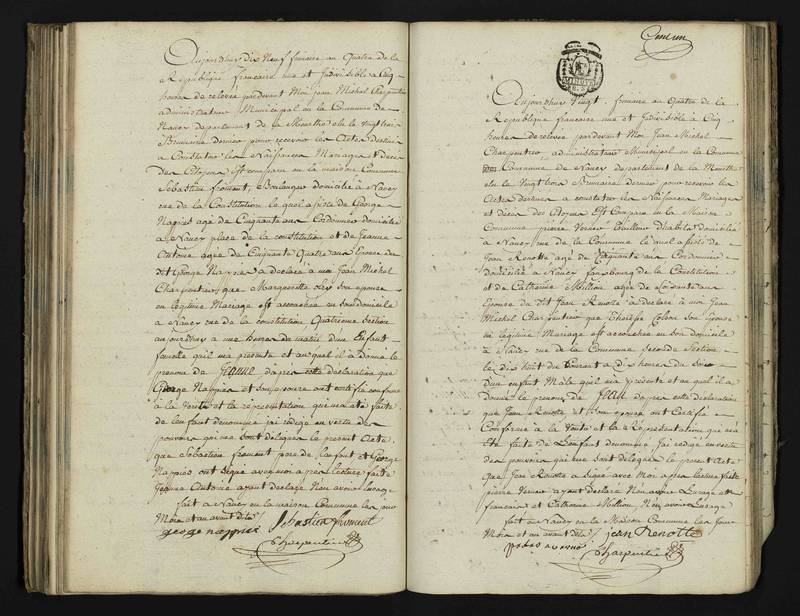 Aujourdhuy dix Neuf frimaire an Quatre de la
République française une et Indivisible a Cinq
heures de relevée pardevant Moi jean Michel Charpentier
administrateur Municipal en la Commune de
Nancy departement de la Meurthe elu le Vingt trois
Brumaire dernier pour recevoir les Actes destinés
a Constater les Naissances Mariages et decès
des Citoyens Est comparu en la maison Commune
Sebastien froment, Boulanger domicilié a Nancy
rue de la Constitution lequel assisté de George
Nappiés agé de Cinquante ans Cordonnier domicilié
a Nancy place de la constitution et de Jeanne
Antoine agée de Cinquante Quatre ans Epouse du
dit George Nappiés a declaré a moi Jean Michel
Charpentier, que Marguerite son epouse
en légitime Mariage est accouchée en son domicile
a Nancy rue de la constitution Quatrieme Section
aujourdhuy a une heure du matin d'un Enfant
femelle qu'il m'a presenté et auquel il a donné le
prenom de jeanne dapres cette déclaration que
George Nappiés et son epouse ont certifié conforme
à la Verité et la représentation qui m'a été faite
de l'enfant denommé j'ai rédigé en vertu des
pouvoirs qui me sont délégués le present Acte,
que Sébastien froment pere de l'enfant et George
Nappiés ont signé avec moi apres lecture faite
Jeanne Antoine ayant declaré N'en avoir l'usage
fait a Nancy en la maison Commune les jour
Mois et an avant dits
george nappiés Sebastien froment
Charpentier
NANCY
Aujourdhuy Vingt frimaire an Quatre de la
République française une et Indivisible a Cinq
heures de relevée pardevant Moi Jean Michel
Charpentier administrateur Municipal en la Commune
Commune de Nancy departement de la Meurthe
elu le Vingt trois Brumaire dernier pour recevoir les
Actes destinés a constater les Naissances Mariages
et décès des Citoyens Est Comparu en la Maison
Commune pierre Vernier tailleur D'habits domicilié
a Nancy rue de la Commune lequel assisté de
Jean Renotte agé de Cinquante ans Cordonnier
domicilié a Nancy faubourg de la Constitution
et de Catherine Million agée de Soixante ans
Epouse du dit Jean Renotte a déclaré a moi Jean
Michel Charpentier que Thérèse Colson son Epouse
en légitime Mariage est accouchée en son domicile
a Nancy rue de la Commune seconde Section
le dix huit du Courant a dix heures du soir
d'un enfant Male qu'il m'a présenté et auquel il a
donné le prenom de jean dapres cette déclaration
que Jean Renotte et son epouse ont Certifié
Conforme a la Verité et la Représentation qui m'a
été faite de L'enfant denommé J'ai redigé en vertu
des pouvoirs qui me sont délégués le present Acte
Que Jean Renotte a signé avec Moi apres lecture faite
pierre Vernier ayant déclaré N'en avoir L'usage en
français et Catherine Million N'en avoir L'usage
fait a Nancy en la Maison Commune les jour
Mois et an avant dits jean Renotte
Charpentier